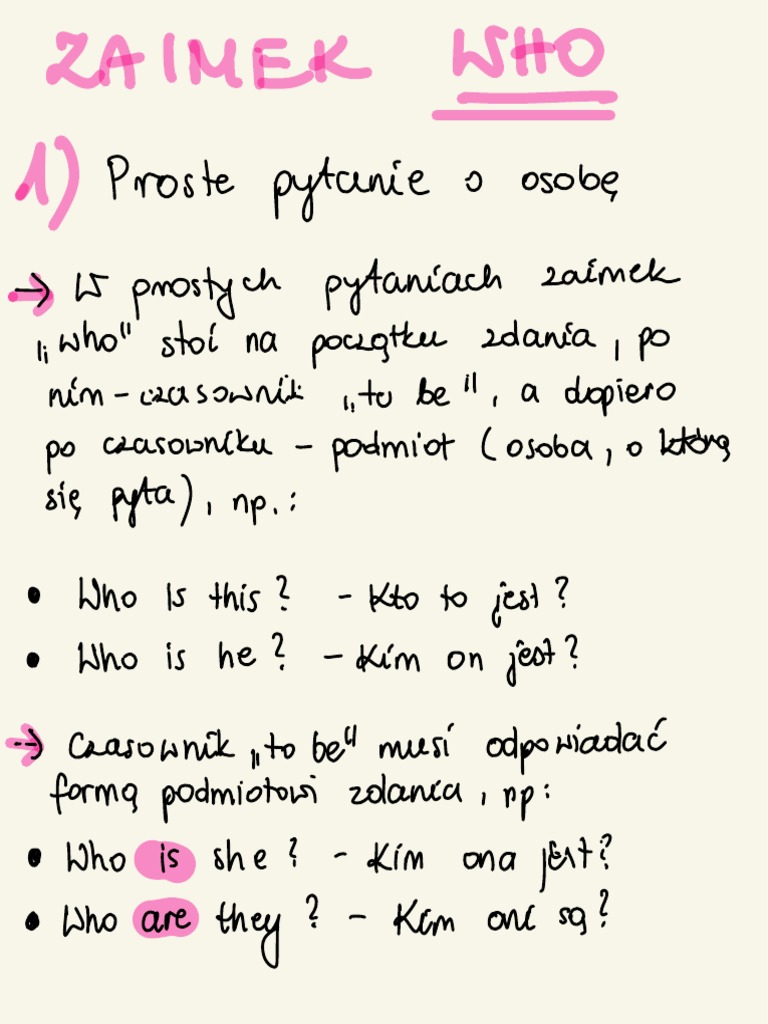 ZAIMEK WHO
1) Proste pytanie o osobę
→ W prostych pytaniach zaimek
„who" stoi na początku zdania, po
nim - czasownik „to be", a dopiero
po czasowniku - podmiot (osoba, o którą
się pyta), np.:
• Who is this? - Kto to jest?
• Who is he? - Kim on jest?
→ Czasownik „to be" musi odpowiadać
formą podmiotowi zdania, np:
• Who is she? - Kim ona jest?
• Who are they? - Kim oni są?